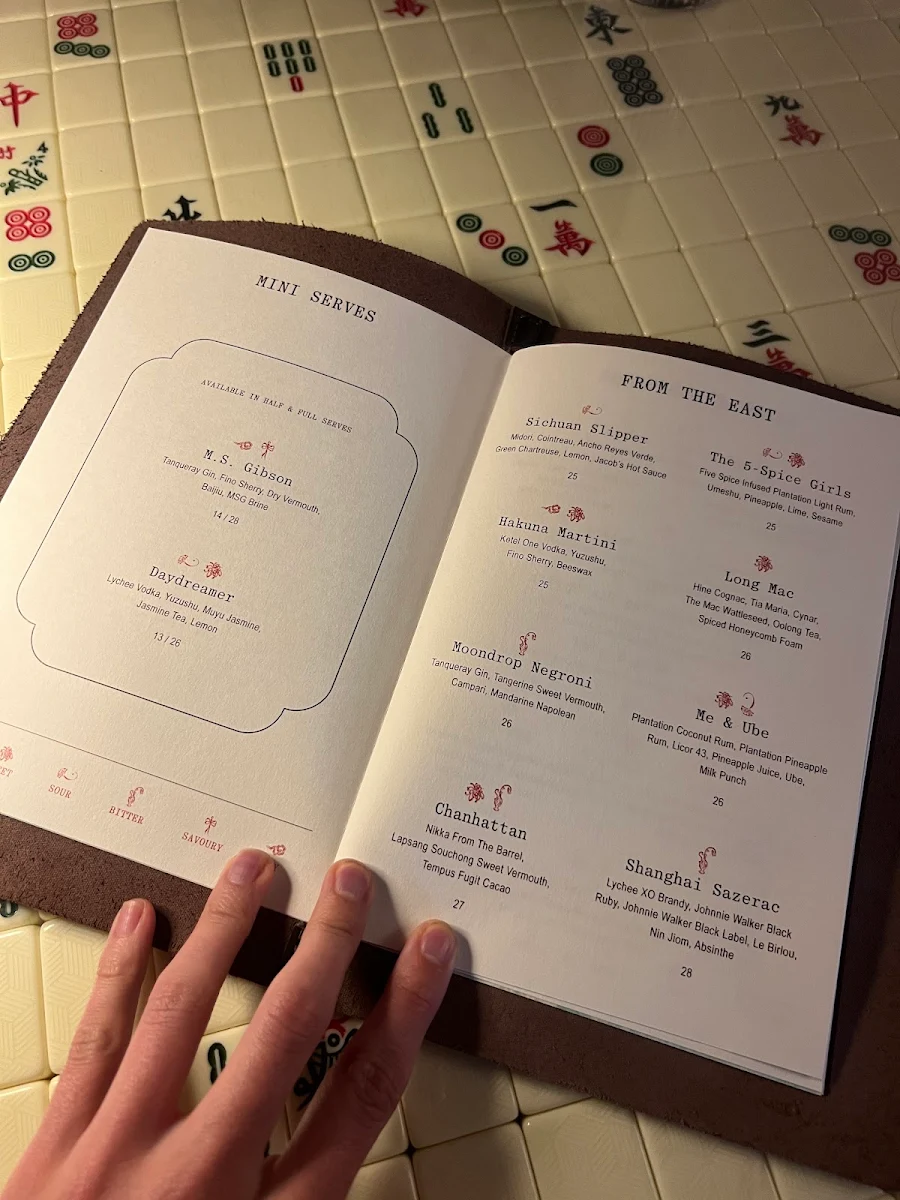 中
東
北
萬
一
萬
三
萬
MINI SERVES
AVAILABLE IN HALF & FULL SERVES
M.S. Gibson
Tanqueray Gin, Fino Sherry, Dry Vermouth,
Baijiu, MSG Brine
14 / 28
Daydreamer
Lychee Vodka, Yuzushu, Muyu Jasmine,
Jasmine Tea, Lemon
13 / 26
SOUR
BITTER
SAVOURY
FROM THE EAST
Sichuan Slipper
Midori, Cointreau, Ancho Reyes Verde,
Green Chartreuse, Lemon, Jacob's Hot Sauce
25
Hakuna Martini
Ketel One Vodka, Yuzushu,
Fino Sherry, Beeswax
25
Moondrop Negroni
Tanqueray Gin, Tangerine Sweet Vermouth,
Campari, Mandarine Napolean
26
Chanhattan
Nikka From The Barrel,
Lapsang Souchong Sweet Vermouth,
Tempus Fugit Cacao
27
The 5-Spice Girls
Five Spice Infused Plantation Light Rum,
Umeshu, Pineapple, Lime, Sesame
25
Long Mac
Hine Cognac, Tia Maria, Cynar,
The Mac Wattleseed, Oolong Tea,
Spiced Honeycomb Foam
26
Me & Ube
Plantation Coconut Rum, Plantation Pineapple
Rum, Licor 43, Pineapple Juice, Ube,
Milk Punch
26
Shanghai Sazerac
Lychee XO Brandy, Johnnie Walker Black
Ruby, Johnnie Walker Black Label, Le Birlou,
Nin Jiom, Absinthe
28